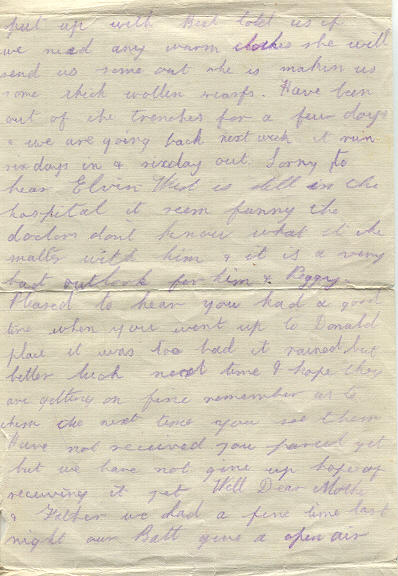 put up with Best told us if
we need any warm clothes she will
send us some out she is making us
some thick wollen scarfs. Have been
out of the trenches for a few days
& we are going back next week it run
six days in & sixday out. Sorry to
hear Elvin West is still in the
hospital it seem funny the
doctors dont know what it the
matter with him & it is a very
bad outlook for him & Peggy.
Pleased to hear you had a good
time when you went up to Donald
place it was too bad it rained but
better luck next time I hope they
are getting on fine remember us to
them the next time you see them
Have not received you parcel yet
but we have not give up hope of
receiving it yet Well Dear Mother
& Father we had a fine time last
night our Batt give a open air